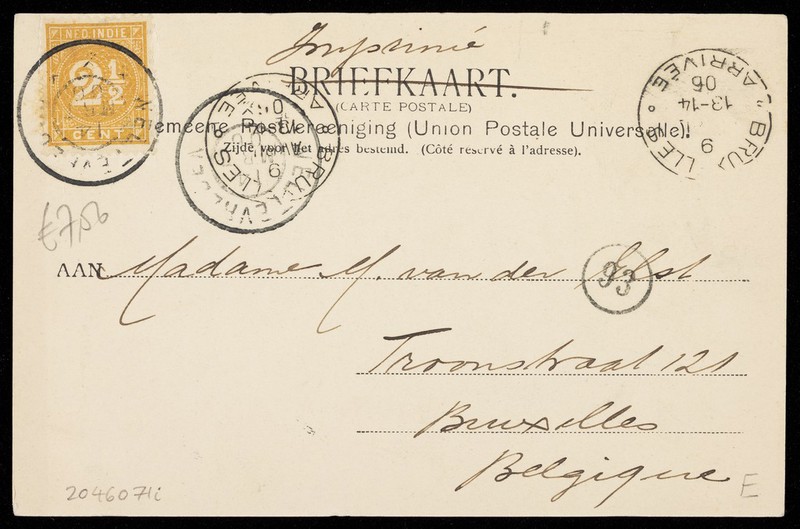 Imprimé
NED. INDIE
2½
CENT
BRIEFKAART.
(CARTE POSTALE)
emeene Postvereeniging (Union Postale Universelle).
Zijde voor het adres bestemd. (Côté reservé à l'adresse).
BRUXELLES
ARRIVÉE
9
13-14
06
WELTEVREDEN
€7,50
AAN Madame M. van der Elst
93
Troonstraat 121
Bruxelles
Belgique
2046071i
E